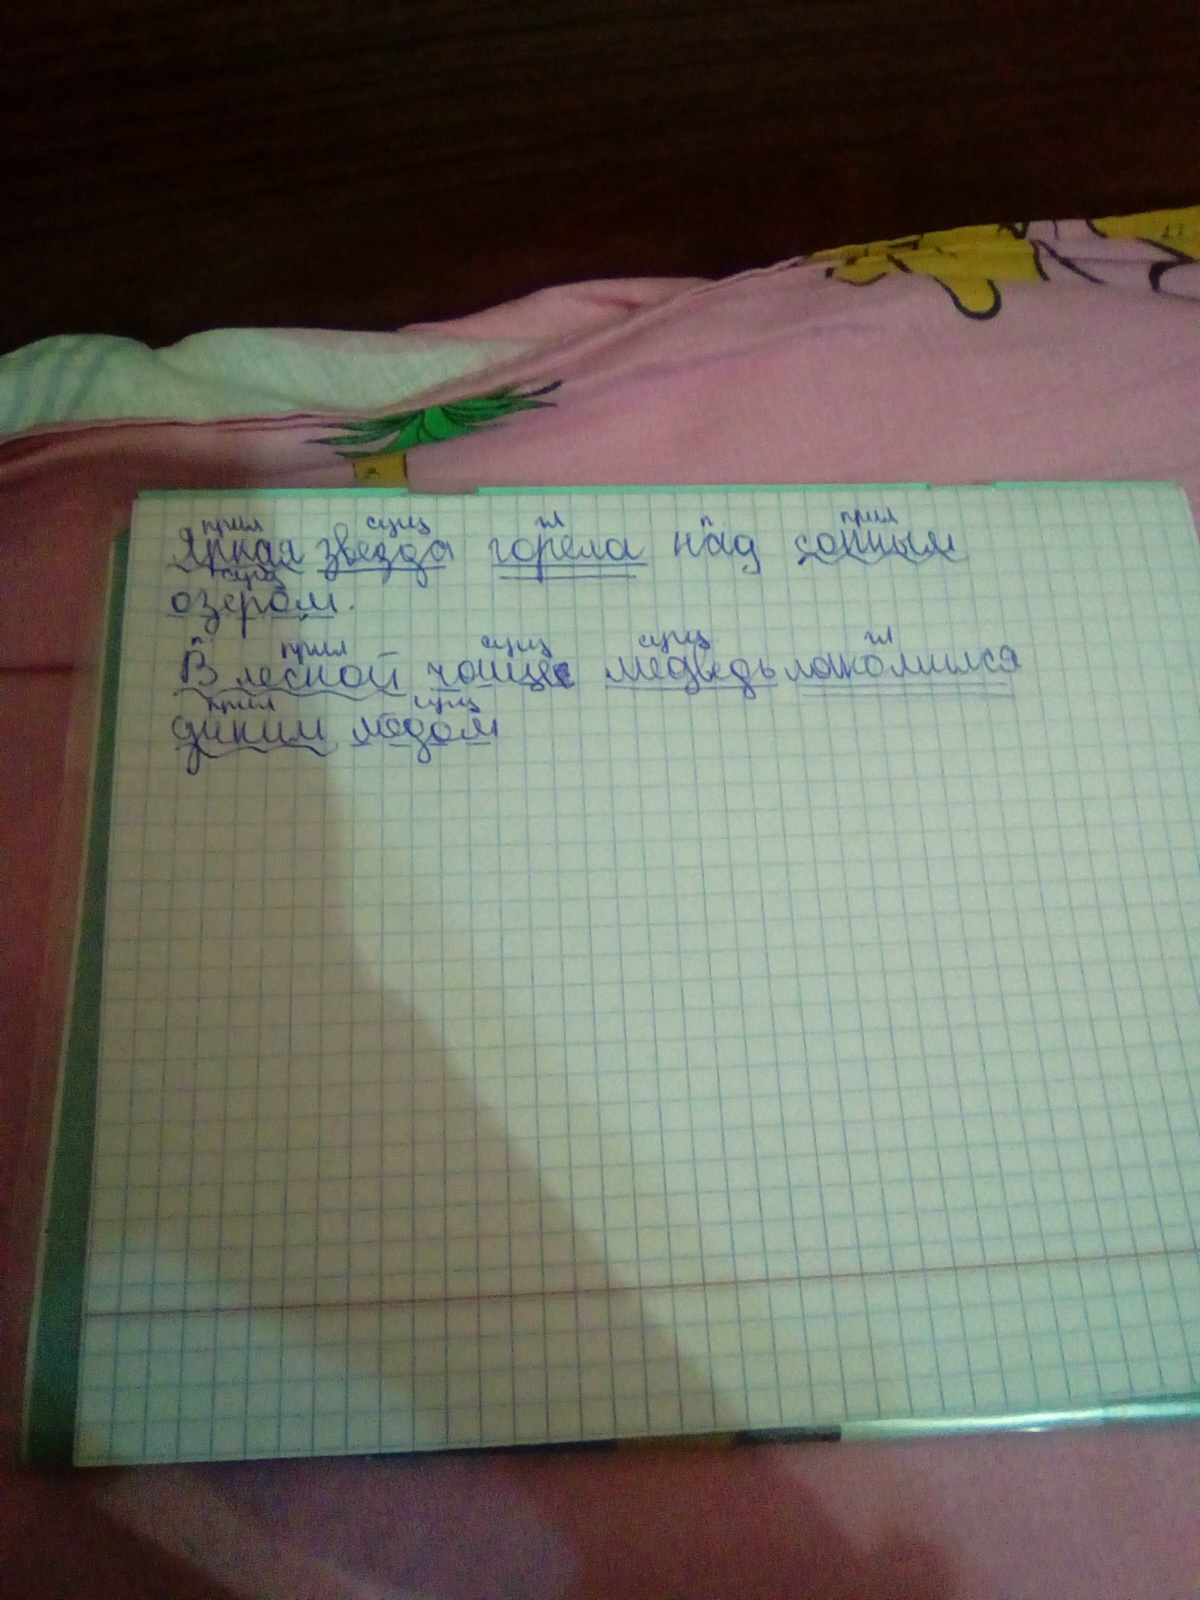 прил сущ гл п прил
Яркая звезда горела над сонным
сущ
озером.
п прил сущ сущ гл
В лесной чаще медведь лакомился
прил сущ
диким медом